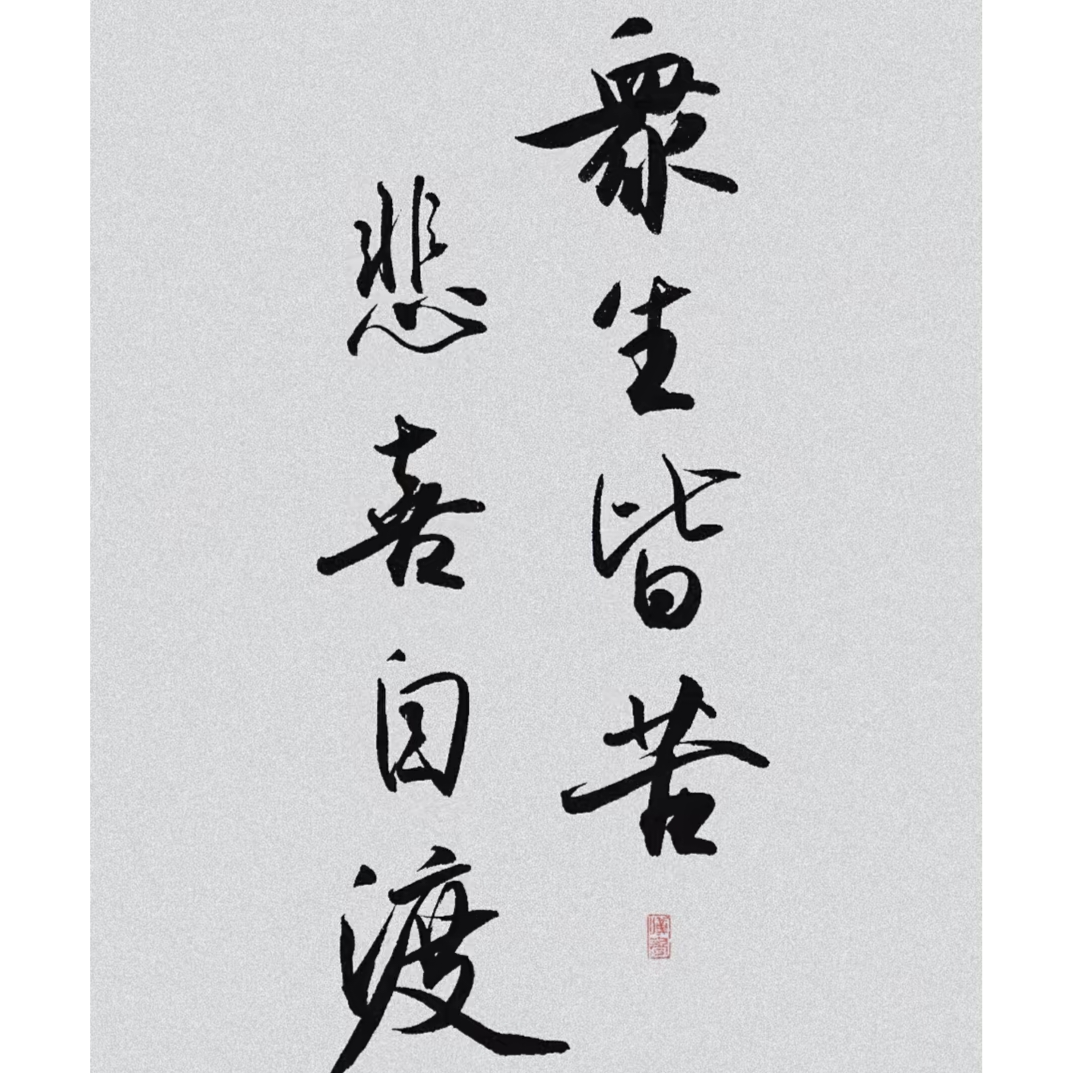 衆生皆苦
悲喜自渡